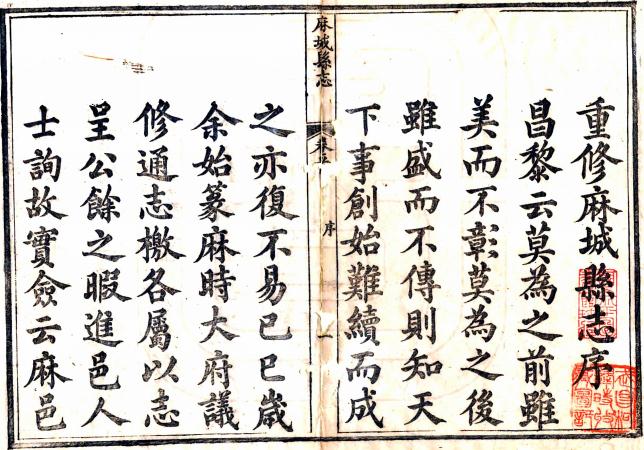 重修麻城縣志序
昌黎云莫為之前雖
美而不彰莫為之後
雖盛而不傳則知天
下事創始難續而成
麻城縣志
序
一
之亦復不易己巳歲
余始篆麻時大府議
修通志檄各屬以志
呈公餘之暇進邑人
士詢故實僉云麻邑